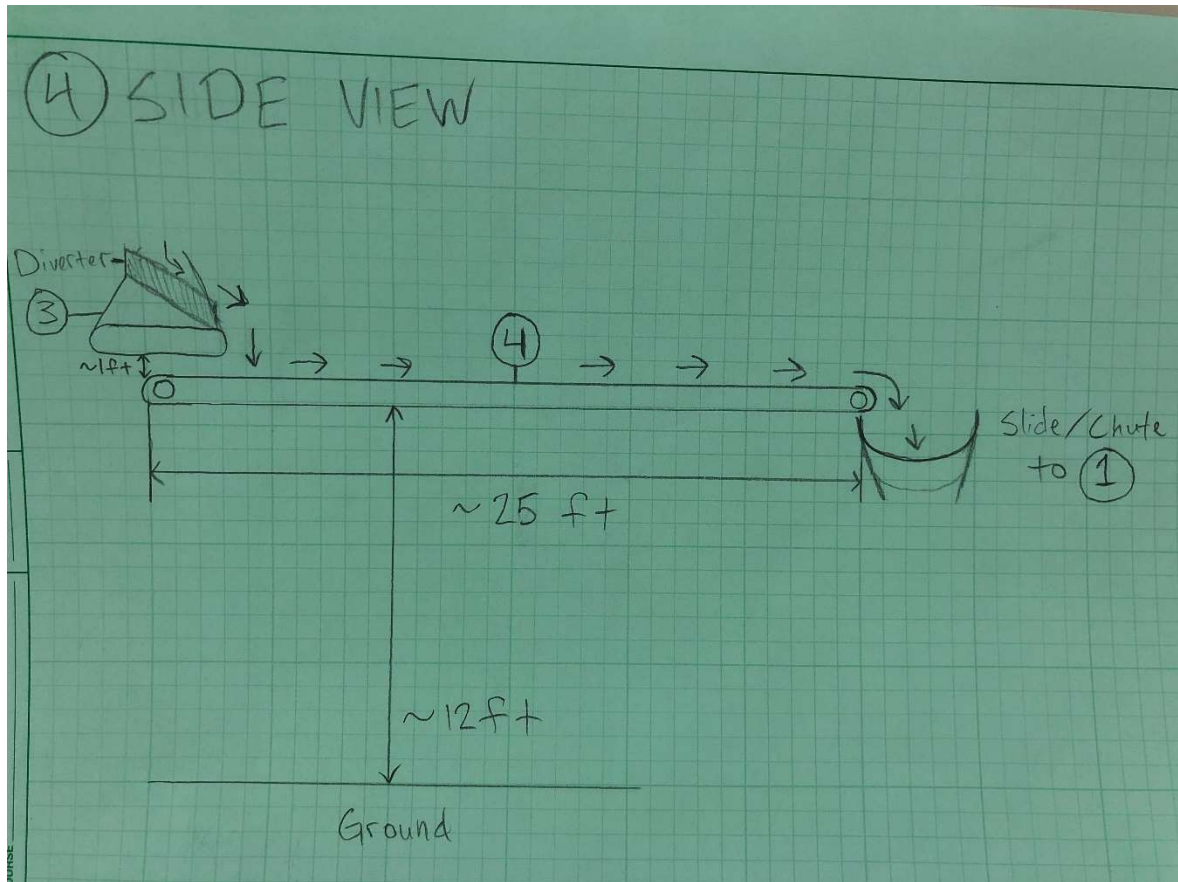 4 SIDE VIEW
Diverter
3
~1ft
4
Slide/Chute
to 1
~25 ft
~12ft
Ground